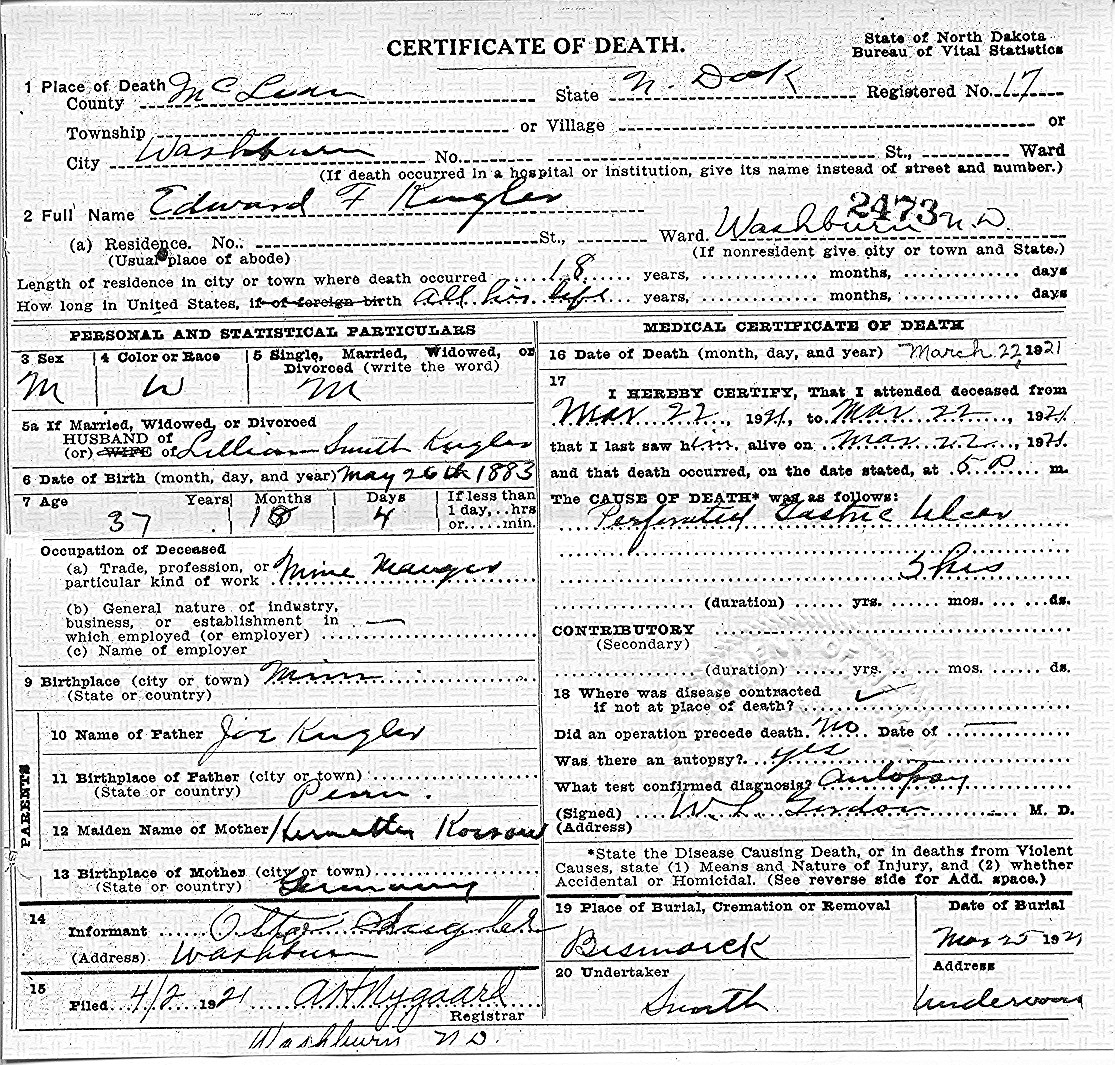 CERTIFICATE OF DEATH.
State of North Dakota
Bureau of Vital Statistics
1 Place of Death
County McLean State N. Dak Registered No. 17
Township or Village or
City Washburn No. St., Ward
(If death occurred in a hospital or institution, give its name instead of street and number.)
2 Full Name Edward F Kugler
2473
(a) Residence. No. St., Ward. Washburn N.D.
(Usual place of abode) (If nonresident give city or town and State.)
Length of residence in city or town where death occurred 18 years, months, days
How long in United States, if of foreign birth All his life years, months, days
PERSONAL AND STATISTICAL PARTICULARS
3 Sex 4 Color or Race 5 Single, Married, Widowed, or
Divorced (write the word)
M W M
5a If Married, Widowed, or Divorced
HUSBAND of
(or) WIFE of Lillian Smith Kugler
6 Date of Birth (month, day, and year) May 26th 1883
7 Age Years Months Days If less than
1 day, ..hrs
or.....min.
37 10 4
Occupation of Deceased
(a) Trade, profession, or
particular kind of work Mine Manager
(b) General nature of industry,
business, or establishment in
which employed (or employer)
(c) Name of employer
9 Birthplace (city or town) Minn
(State or country)
PARENTS
10 Name of Father Joe Kugler
11 Birthplace of Father (city or town)
(State or country) Penn.
12 Maiden Name of Mother
13 Birthplace of Mother (city or town)
(State or country) Germany
14
Informant Kugler
(Address) Washburn
15
Filed 4/2 1921 A H Nygaard
Registrar
Washburn N D.
MEDICAL CERTIFICATE OF DEATH
16 Date of Death (month, day, and year) March 22, 1921
17
I HEREBY CERTIFY, That I attended deceased from
Mar 22, 1921, to Mar 22, 1921
that I last saw him alive on Mar 22, 1921.
and that death occurred, on the date stated, at 5 P m.
The CAUSE OF DEATH* was as follows:
Perforated Gastric Ulcer
5 hrs
(duration) yrs. mos. ds.
CONTRIBUTORY
(Secondary)
(duration) yrs. mos. ds.
18 Where was disease contracted
if not at place of death?
Did an operation precede death. No. Date of
Was there an autopsy? yes
What test confirmed diagnosis? Autopsy
(Signed) W. L. Gordon M. D.
(Address)
*State the Disease Causing Death, or in deaths from Violent
Causes, state (1) Means and Nature of Injury, and (2) whether
Accidental or Homicidal. (See reverse side for Add. space.)
19 Place of Burial, Cremation or Removal Date of Burial
Bismarck Mar 25 1921
20 Undertaker Address
Smith Underwood